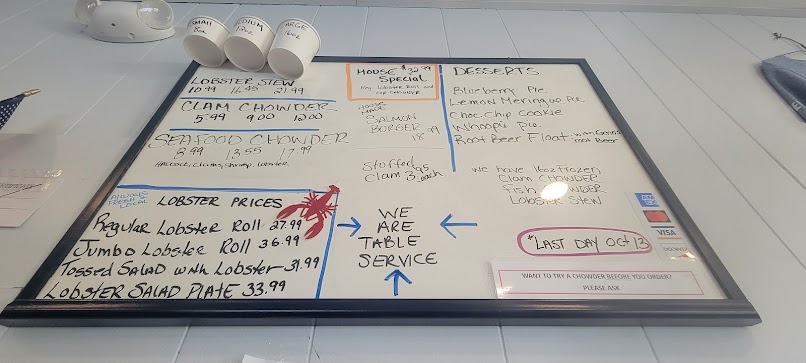 SMALL
8oz
MEDIUM
12oz
LARGE
16oz
LOBSTER STEW
10.99 16.45 21.99
CLAM CHOWDER
5.99 9.00 12.00
SEAFOOD CHOWDER
8.99 13.55 17.99
HADDOCK, Clams, Shrimp, Lobster
HOUSE $32.99
Special
Reg Lobster Roll and
cup CHOWDER
HOUSE
MADE
SALMON
BURGER
18.99
Stuffed
Clam 3.95 each
DESSERTS
Blueberry Pie
Lemon Meringue Pie
Choc. Chip Cookie
Whoopie Pie
Root Beer Float
root Beer
We have 16oz frozen
Clam CHOWDER
Fish CHOWDER
Lobster Stew
ALWAYS
FRESH
LOCAL
LOBSTER PRICES
Regular Lobster Roll 27.99
Jumbo Lobster Roll 36.99
Tossed SALAD with Lobster 31.99
LOBSTER SALAD PLATE 33.99
WE
ARE
TABLE
SERVICE
*LAST DAY OCT 13
VISA
DISCOVER
WANT TO TRY A CHOWDER BEFORE YOU ORDER?
PLEASE ASK